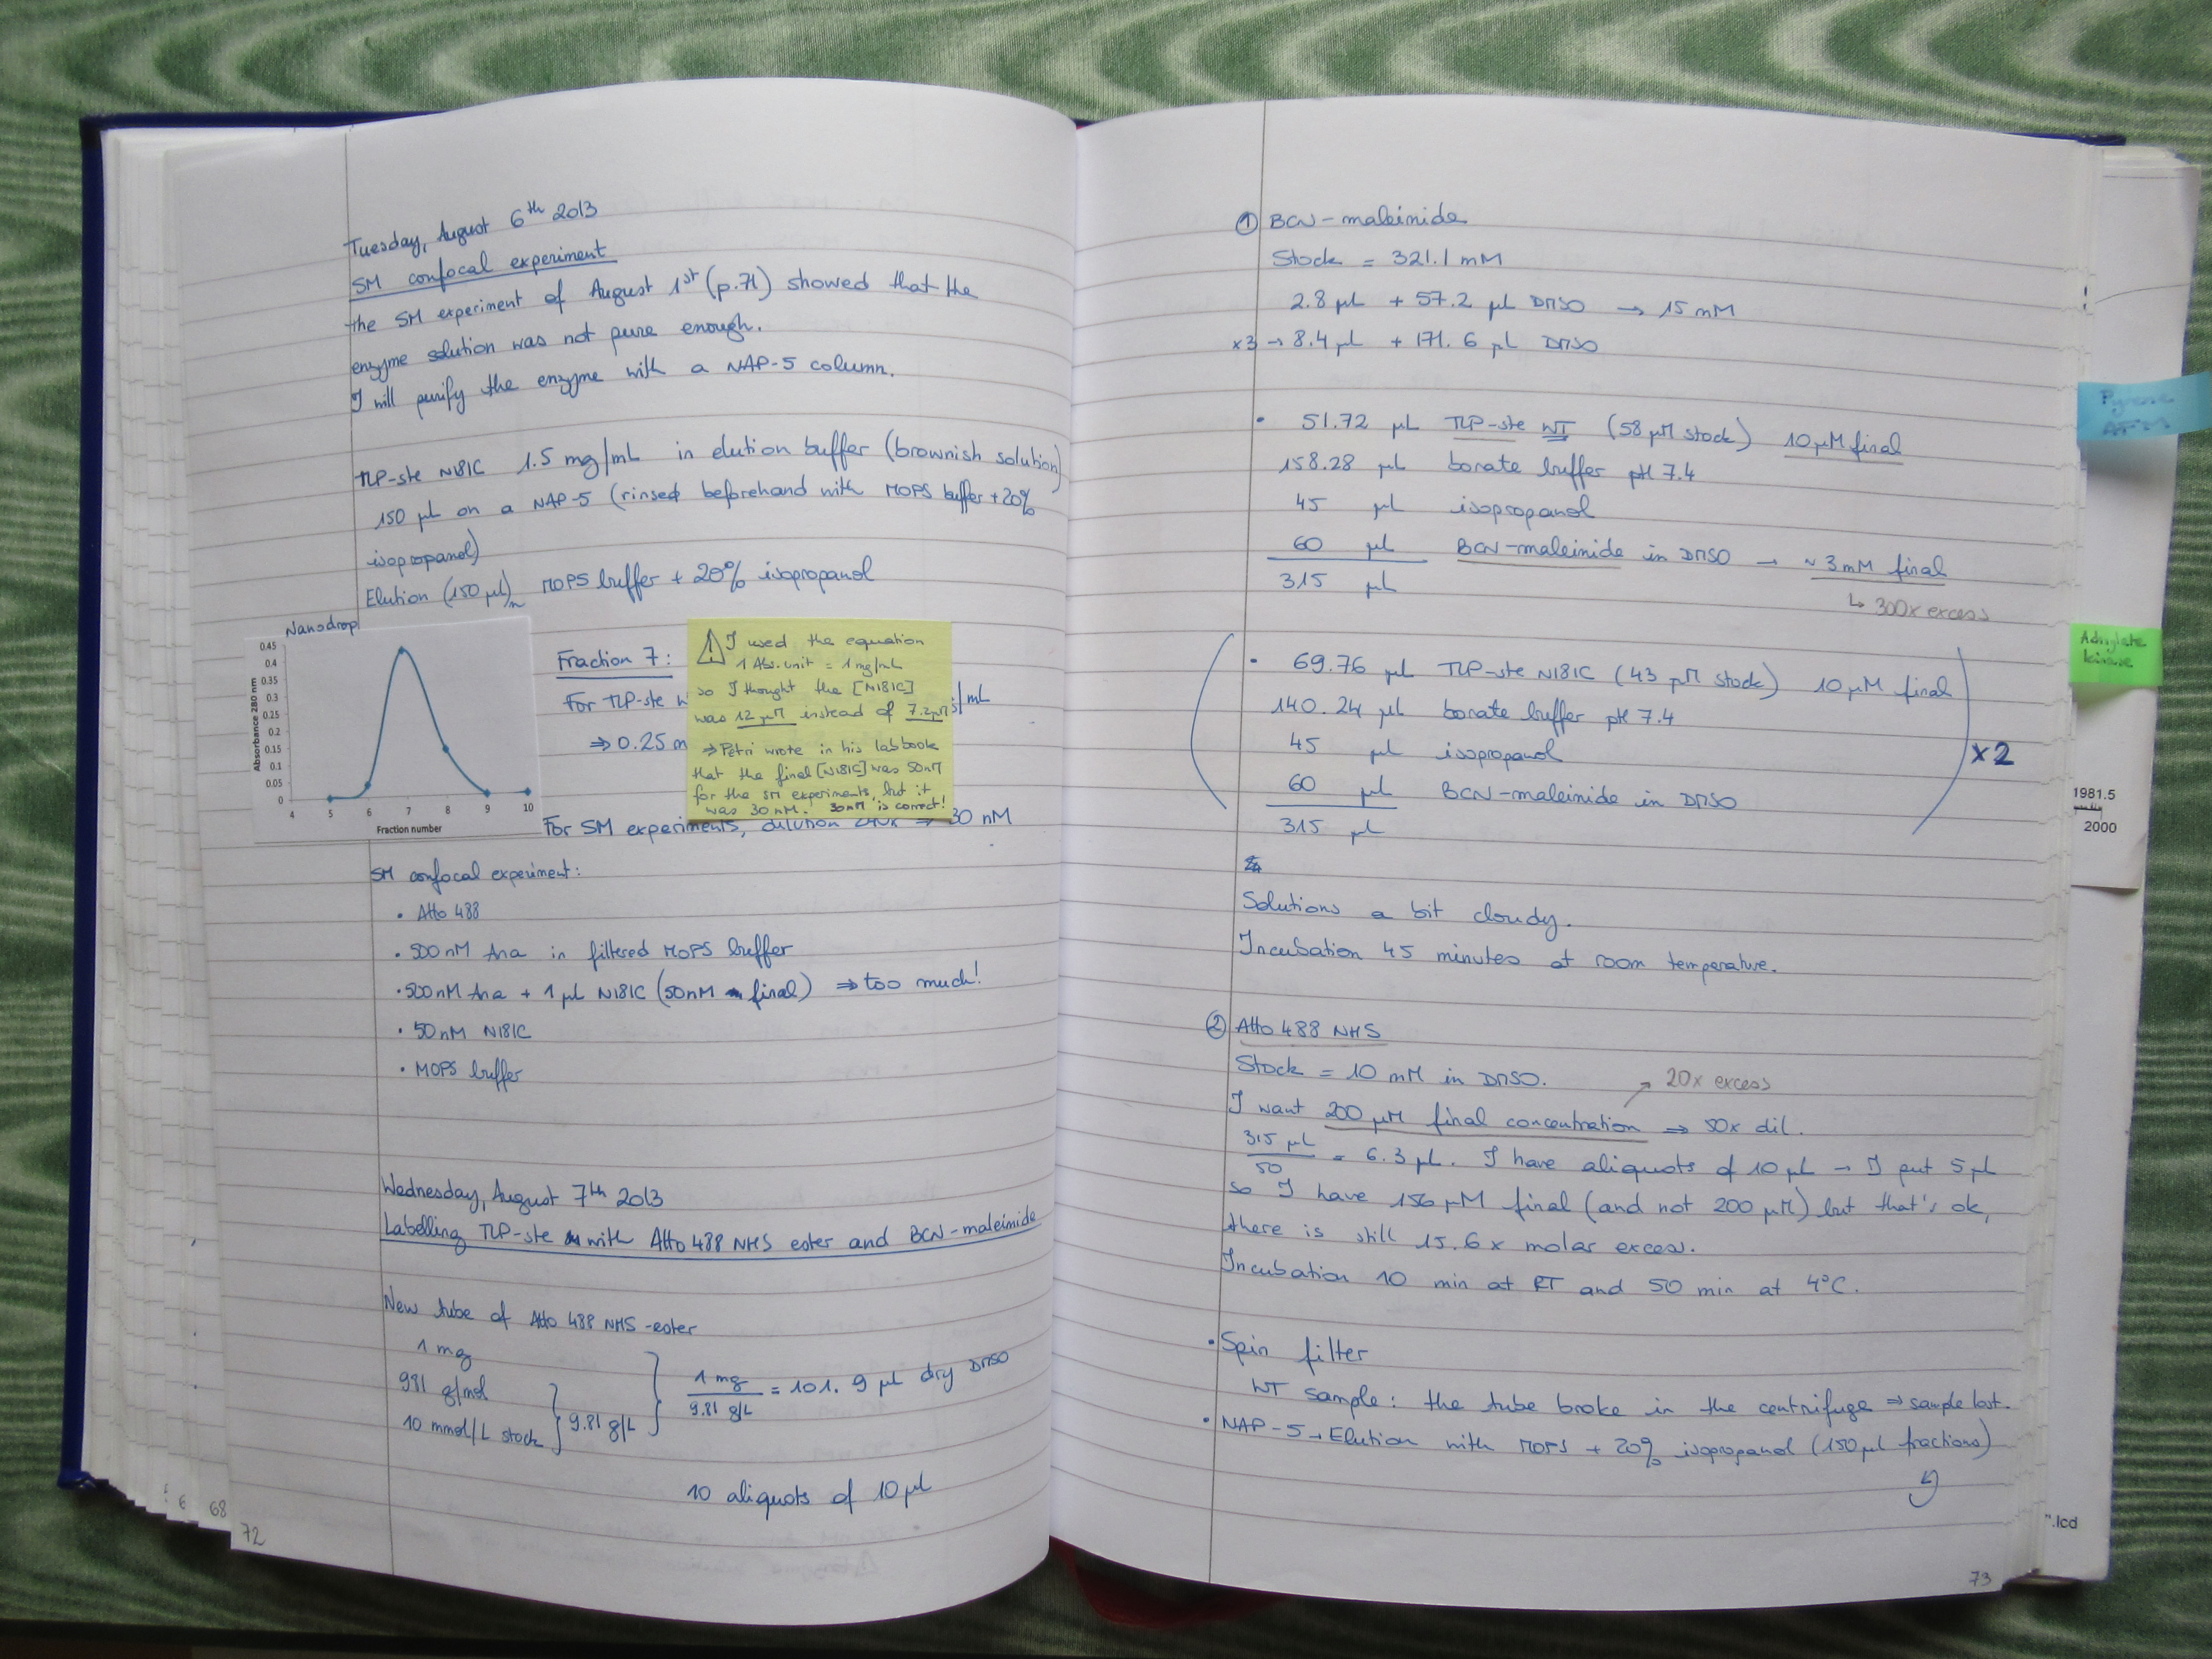 Tuesday, August 6th 2013
SM confocal experiment
the SM experiment of August 1st (p.71) showed that the
enzyme solution was not pure enough.
I will purify the enzyme with a NAP-5 column.
TLP-ste N181C 1.5 mg/mL in elution buffer (brownish solution)
150 µL on a NAP-5 (rinsed beforehand with MOPS buffer + 20%
isopropanol)
Elution (150 µL) MOPS buffer + 20% isopropanol
Nanodrop
0.45
0.4
0.35
0.3
0.25
0.2
0.15
0.1
0.05
0
Absorbance 280 nm
4 5 6 7 8 9 10
Fraction number
Fraction 7:
For TLP-ste
/mL
⇒ 0.25 m
⚠ I used the equation
1 Abs. unit = 1 mg/mL
so I thought the [N181C]
was 12 µM instead of 7.2 µM
⇒ Petri wrote in his labbook
that the final [N181C] was 50nM
for the SM experiments, but it
was 30 nM. 30nM is correct!
For SM experiments, dilution 240x ⇒ 30 nM
SM confocal experiment:
• Atto 488
• 500 nM Ana in filtered MOPS buffer
• 500nM Ana + 1 µL N181C (50nM final) ⇒ too much!
• 50nM N181C
• MOPS buffer
Wednesday, August 7th 2013
Labelling TLP-ste with Atto 488 NHS ester and BCN-maleimide
New tube of Atto 488 NHS-ester
1 mg
981 g/mol
10 mmol/L stock
9.81 g/L
1 mg
9.81 g/L
= 101.9 µL dry DMSO
10 aliquots of 10 µL
6
68
72
① BCN-maleimide
Stock = 321.1 mM
2.8 µL + 57.2 µL DMSO → 15 mM
x3 → 8.4 µL + 171.6 µL DMSO
• 51.72 µL TLP-ste WT (58 µM stock) 10 µM final
158.28 µL borate buffer pH 7.4
45 µL isopropanol
60 µL BCN-maleimide in DMSO → ~ 3 mM final
315 µL
↳ 300x excess
• 69.76 µL TLP-ste N181C (43 µM stock) 10 µM final
140.24 µL borate buffer pH 7.4
45 µL isopropanol
x2
60 µL BCN-maleimide in DMSO
315 µL
Solutions a bit cloudy.
Incubation 45 minutes at room temperature.
② Atto 488 NHS
Stock = 10 mM in DMSO.
↗ 20x excess
I want 200 µM final concentration ⇒ 50x dil.
315 µL
50
= 6.3 µL. I have aliquots of 10 µL → I put 5 µL
so I have 156 µM final (and not 200 µM) but that's ok,
there is still 15.6x molar excess.
Incubation 10 min at RT and 50 min at 4°C.
• Spin filter
WT sample: the tube broke in the centrifuge ⇒ sample lost.
• NAP-5 → Elution with MOPS + 20% isopropanol (150 µL fractions)
73
Pyrene
AFM
Adenylate
kinase
1981.5
2000
".lcd